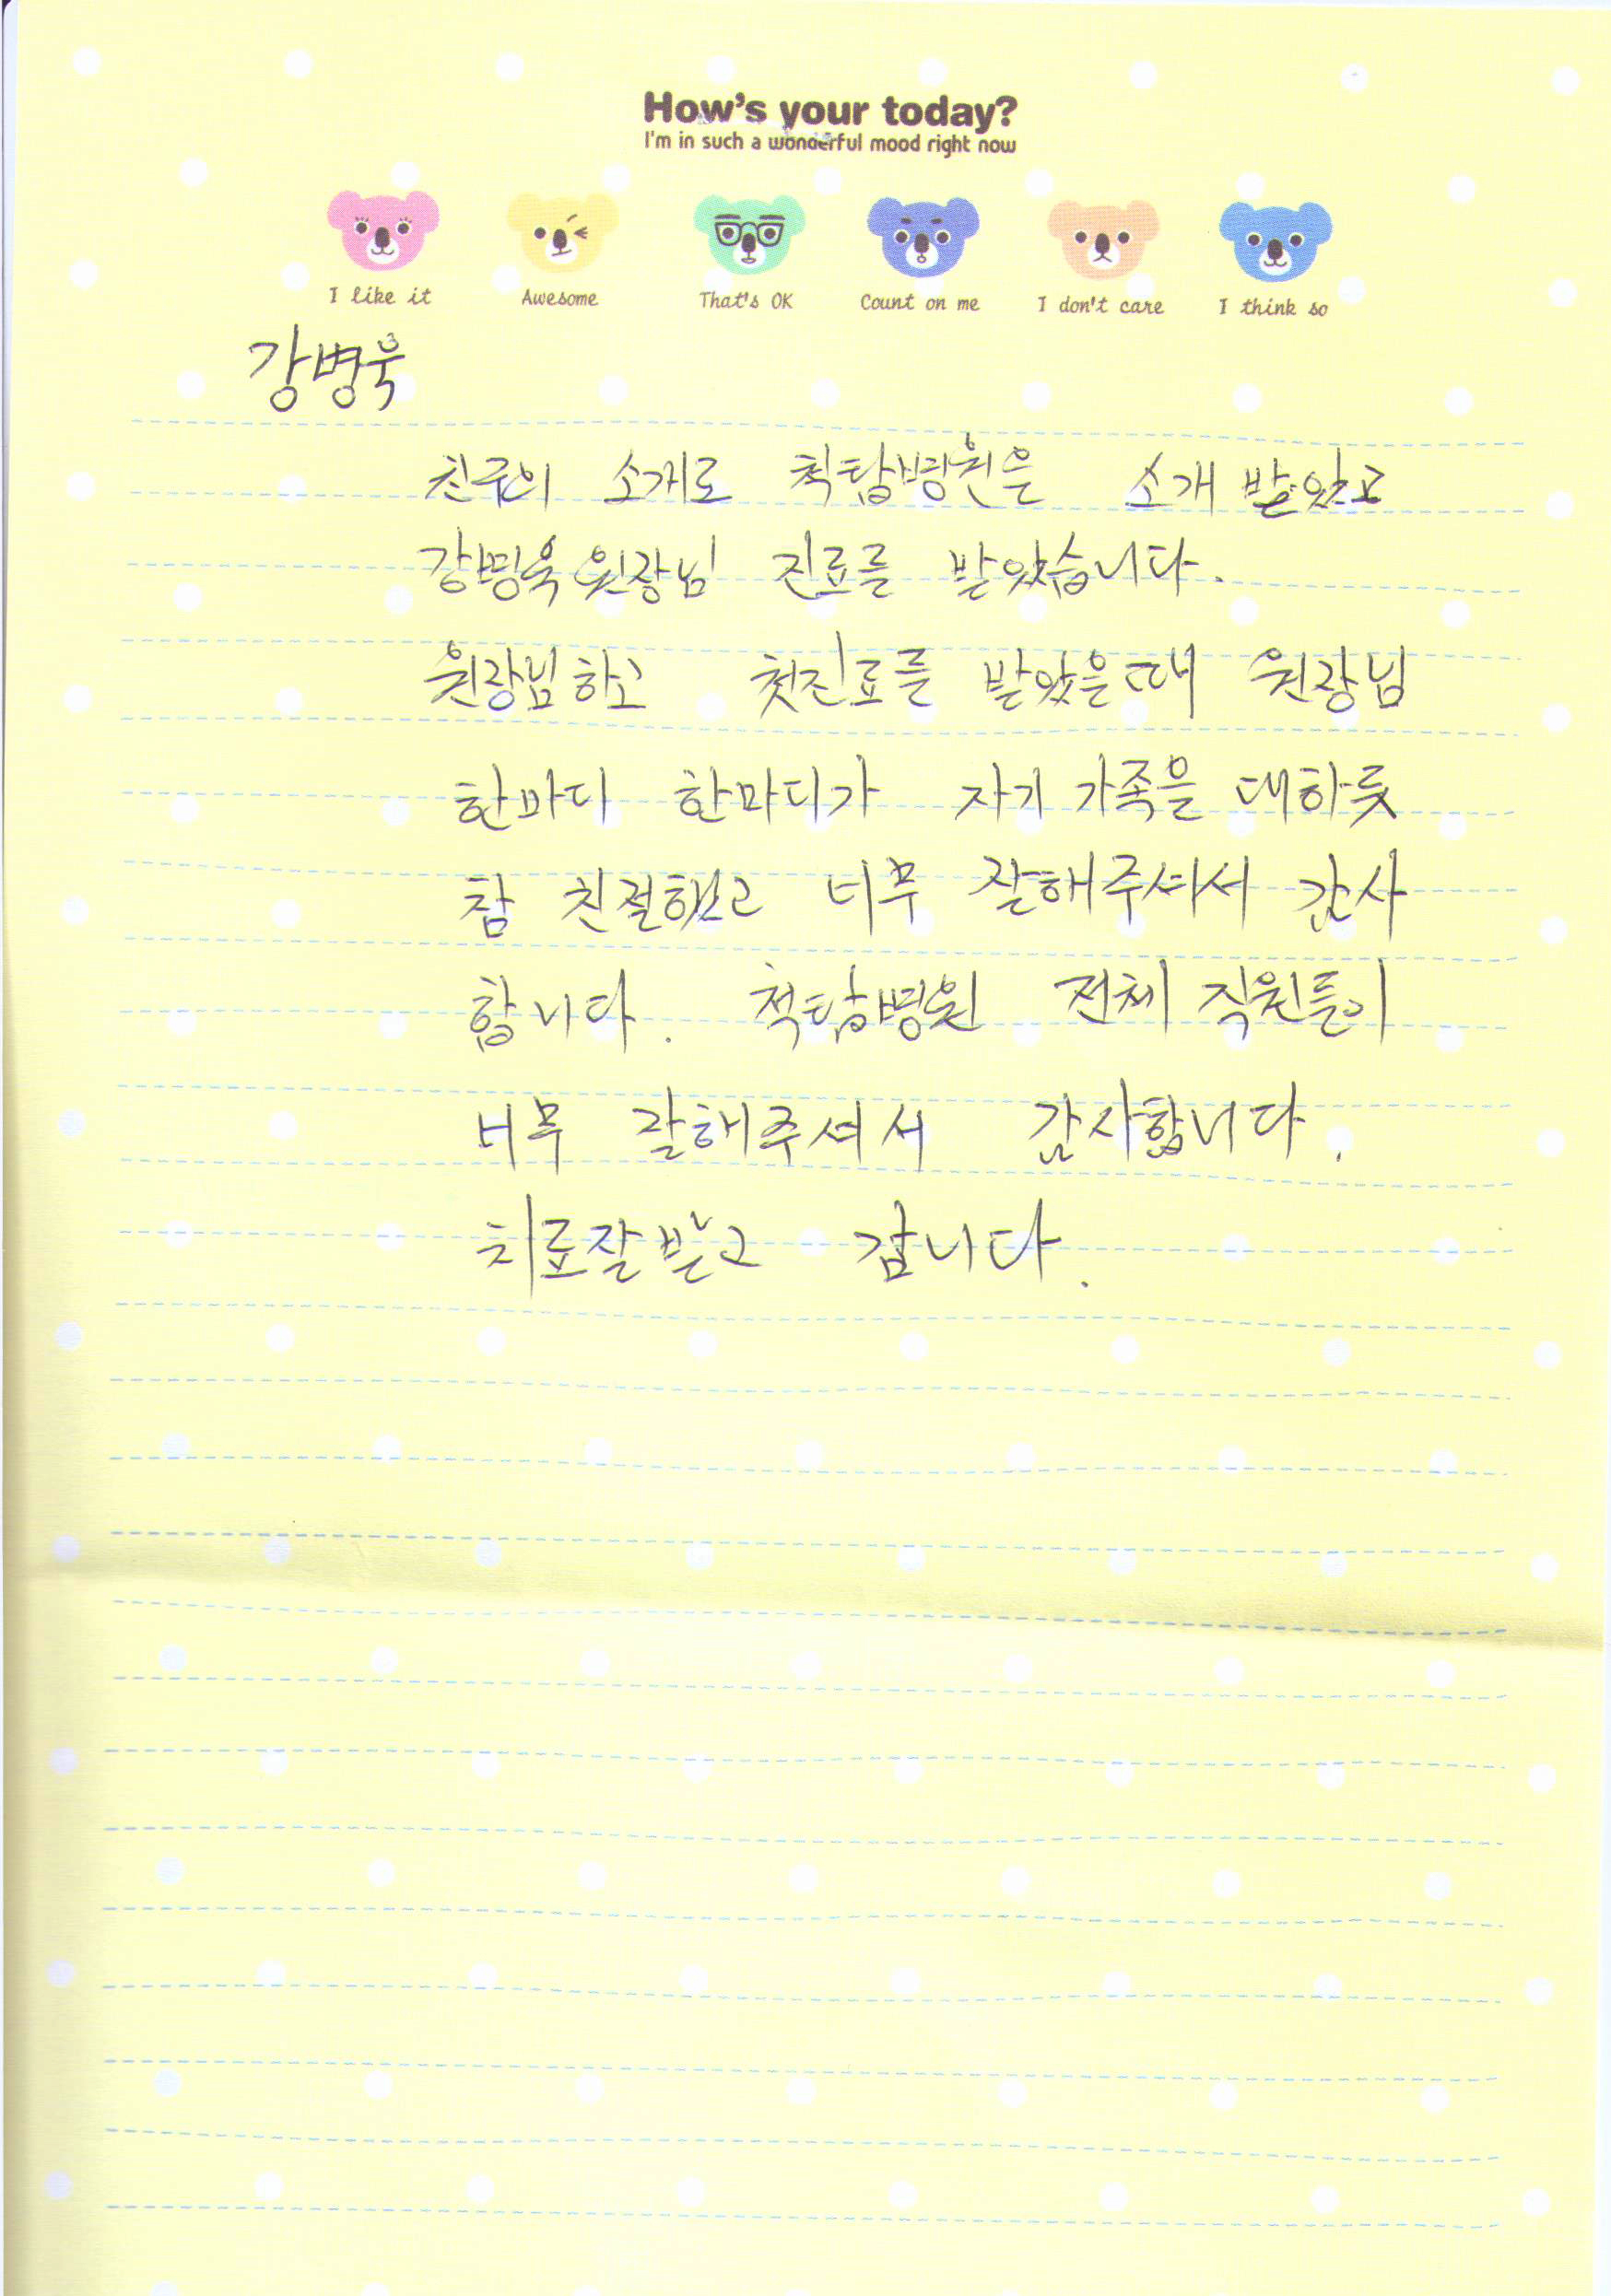 How's your today?
I'm in such a wonderful mood right now
I like it Awesome That's OK Count on me I don't care I think so
강병욱
친구의 소개로 척탑병원은 소개 받았고
강병욱 원장님 진료를 받았습니다.
원장님하고 첫진료를 받았을때 원장님
한마디 한마디가 자기 가족을 대하듯
참 친절했고 너무 잘해주셔서 감사
합니다. 척탑병원 전체 직원들이
너무 잘해주셔서 감사합니다.
치료잘받고 갑니다.